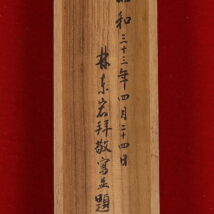 昭和三十三年四月二十四日
林東岩拜敬寫並題